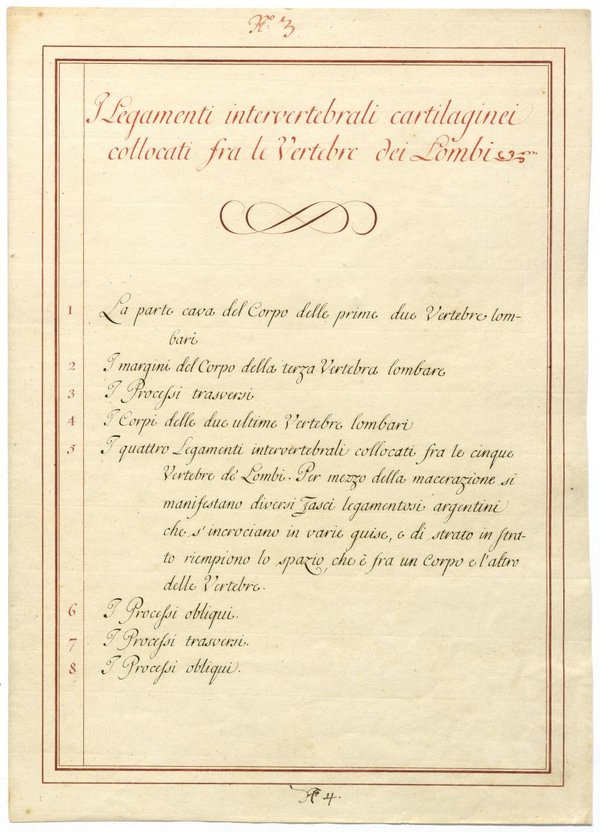 N.º 3
I Legamenti intervertebrali cartilaginei
collocati fra le Vertebre dei Lombi
1 La parte cava del Corpo delle prime due Vertebre lom-
bari
2 I margini del Corpo della terza Vertebra lombare
3 I Processi trasversi
4 I Corpi delle due ultime Vertebre lombari
5 I quattro Legamenti intervertebrali collocati fra le cinque
Vertebre de' Lombi. Per mezzo della macerazione si
manifestano diversi Fasci legamentosi argentini
che s'incrociano in varie guise, e di strato in stra-
to riempiono lo spazio, che è fra un Corpo e l'altro
delle Vertebre.
6 I Processi obliqui.
7 I Processi trasversi.
8 I Processi obliqui.
N.º 4.